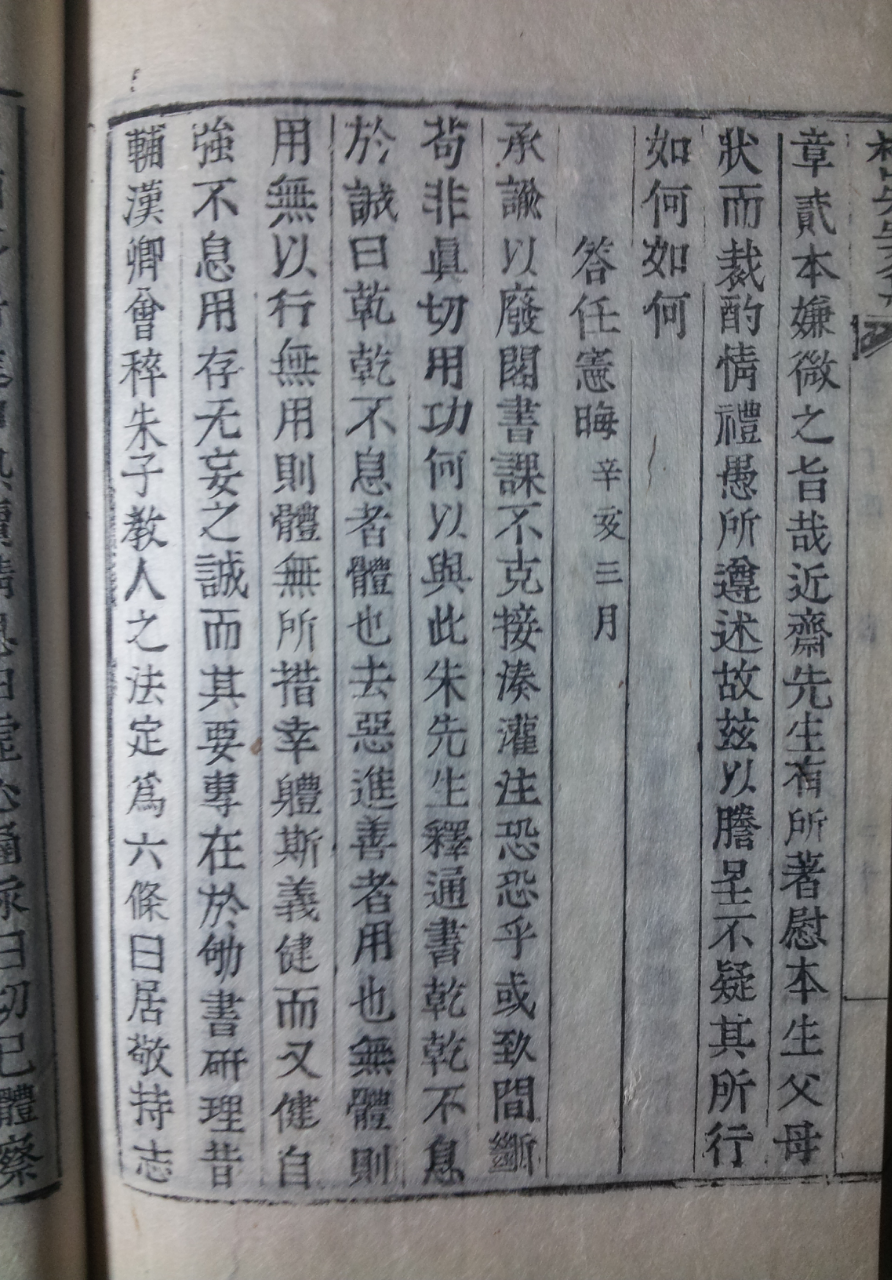 章貳本嫌微之旨哉近齋先生有所著慰本生父母
狀而裁酌情禮愚所遵述故玆以謄呈不疑其所行
如何如何
答任憲晦 辛亥三月
承諭以廢閣書課不克接湊灌注恐恐乎或致間斷
苟非眞切用功何以與此朱先生釋通書乾乾不息
於誠曰乾乾不息者體也去惡進善者用也無體則
用無以行無用則體無所措幸軆斯義健而又健自
強不息用存无妄之誠而其要專在於劬書硏理昔
輔漢卿會稡朱子敎人之法定爲六條曰居敬持志
曰切己體察